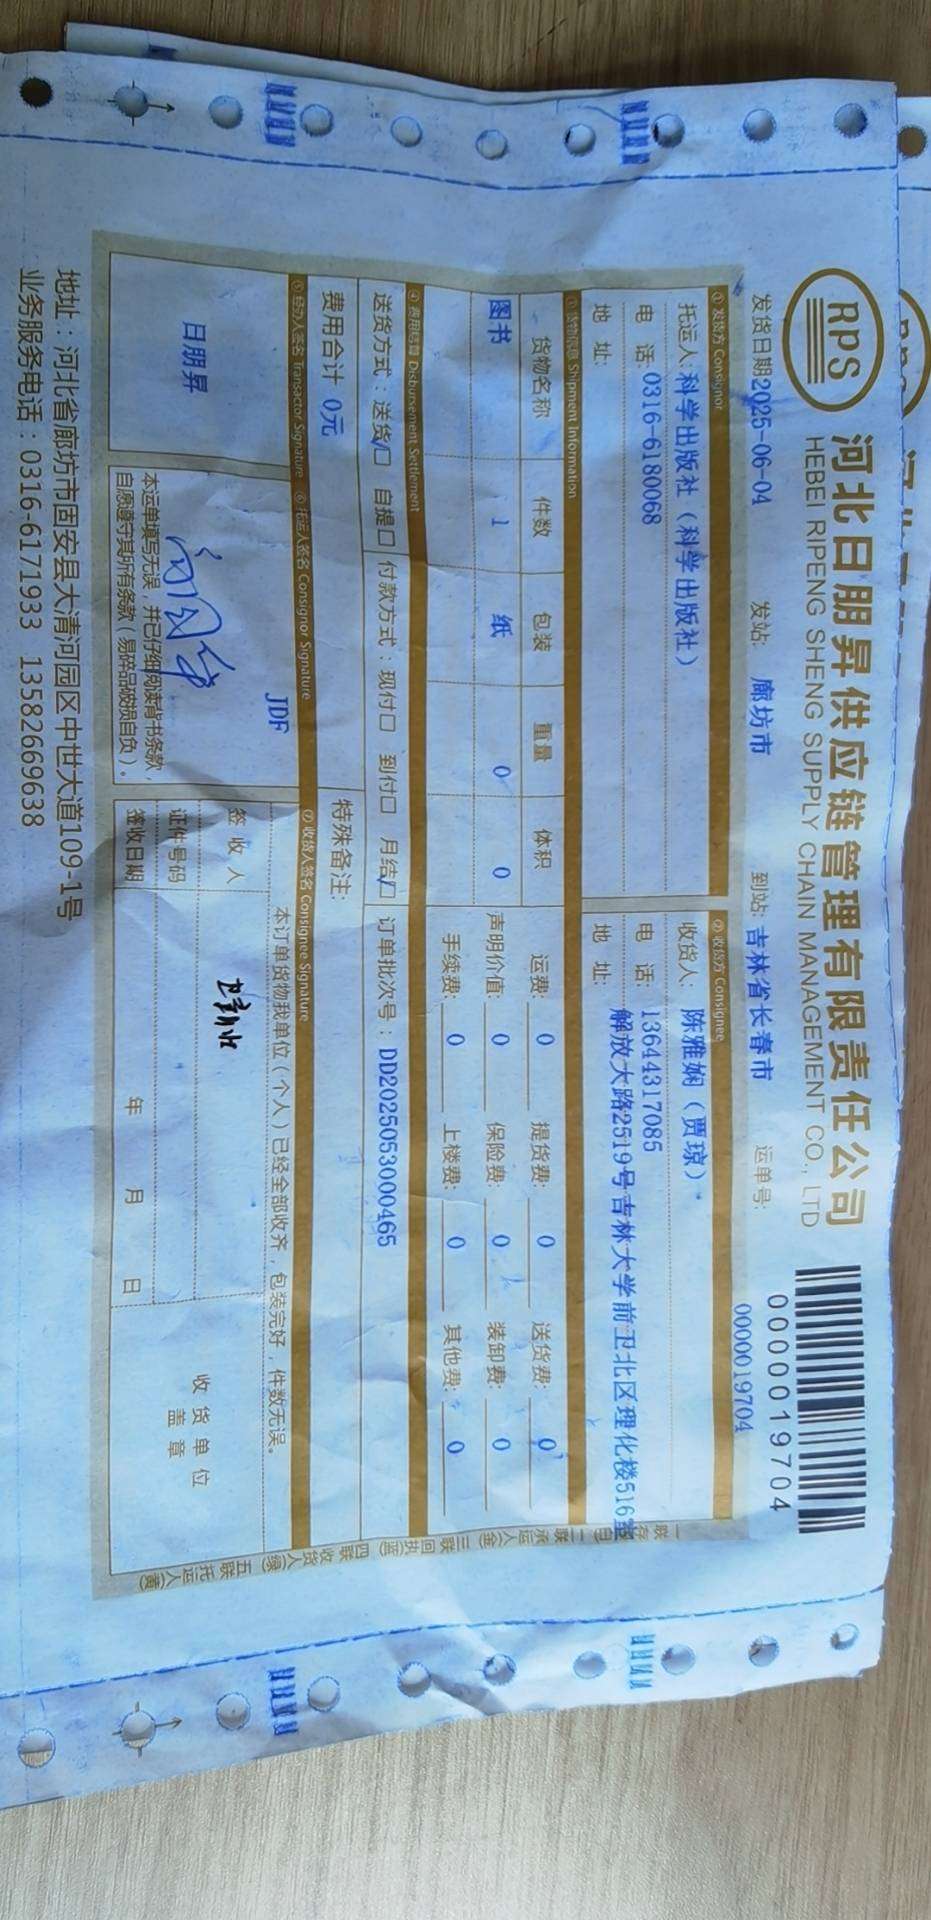 RPS
河北日朋昇供应链管理有限责任公司
HEBEI RIPENG SHENG SUPPLY CHAIN MANAGEMENT CO., LTD
0000019704
发货日期2025-06-04 发站: 廊坊市 到站: 吉林省长春市 运单号: 0000019704
① 发货方 Consignor ② 收货方 Consignee
托运人: 科学出版社（科学出版社） 收货人: 陈雅娴（贾琼）
电 话: 0316-6180068 电 话: 13644317085
地 址: 地 址: 解放大路2519号吉林大学前卫北区理化楼516室
③ 货物信息 Shipment Information
货物名称 件数 包装 重量 体积 运费: 0 提货费: 0 送货费: 0
图书 1 纸 0 0 声明价值: 0 保险费: 0 装卸费: 0
手续费: 0 上楼费: 0 其他费: 0
④ 费用结算 Disbursement Settlement
送货方式：送货☑ 自提□ 付款方式：现付□ 到付□ 月结☑ 订单批次号：DD20250530000465
费用合计 0元 特殊备注:
⑤ 经办人签名 Transactor Signature ⑥ 托运人签名 Consignor Signature ⑦ 收货人签名 Consignee Signature
日朋昇
JDF
本运单填写无误，并已仔细阅读背书条款，
自愿遵守其所有条款（易碎品破损自负）。
本订单货物我单位（个人）已经全部收齐，包装完好，件数无误。
签 收 人
证件号码
签收日期 年 月 日
收货单位
盖 章
一联存根(白) 二联承运人(金) 三联回执(蓝) 四联收货人(绿) 五联托运人(黄)
地址：河北省廊坊市固安县大清河园区中世大道109-1号
业务服务电话：0316-6171933 13582669638